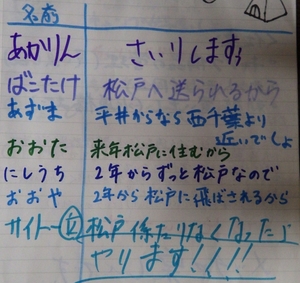 名前
あかりん さいりしますぅ
ばこたけ 松戸へ送られるから
あずま 平井からなら西千葉より
近いでしょ
おおた 来年松戸に住むから
にしうち 2年からずっと松戸なので
おおや 2年から松戸に飛ばされるから
サイトー㊣ 松戸係たりなくなったら
やります!!!